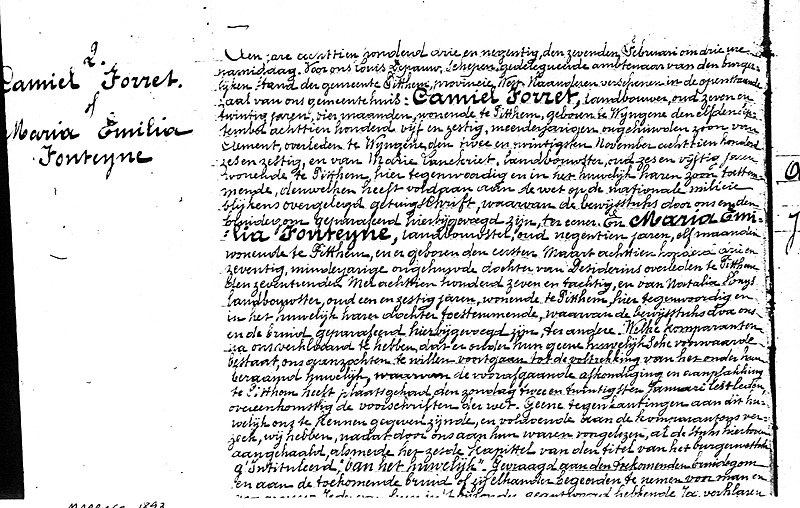 2.
Camiel Forret.
&
Maria Emilia
Fonteyne
Den jare achttien honderd drie en negentig, den zevenden Februari om drie ure
namiddag. Voor ons Louis Depauw, Schepen gedelegueerde ambtenaar van den burger-
lijken stand der gemeente Pitthem, provincie West Vlaanderen verschenen in de openstaande
zaal van ons gemeentehuis: Camiel Forret, landbouwer, oud zeven en
twintig jaren, vier maanden, wonende te Pitthem, geboren te Wyngene den elfden Sep-
tember achttien honderd vijf en zestig, meerderjarigen ongehuwden zoon van
Clement, overleden te Wyngene, den twee en twintigsten November achttien honderd
zes en zestig, en van Marie Lanckriet, landbouwster, oud zes en vijftig jaren
wonende te Pitthem, hier tegenwoordig en in het huwelijk haren zoon toestem-
mende, denwelken heeft voldaan aan de wet op de nationale militie
blijkens overgelegd getuigschrift, waarvan de bewijsstuks door ons en den
bruidegom geparafeerd hierbijgevoegd zijn, ter eener. En Maria Emi-
lia Fonteyne, landbouwster, oud negentien jaren, elf maanden
wonende te Pitthem, en er geboren den eersten Maart achttien honderd drie en
zeventig, minderjarige ongehuwde dochter van Desiderius overleden te Pitthem
den zeventienden Mei achttien honderd zeven en tachtig, en van Natalia Lonys
landbouwster, oud een en zestig jaren, wonende te Pitthem, hier tegenwoordig en
in het huwelijk harer dochter toestemmende, waarvan de bewijsstuks door ons
en de bruid geparafeerd hierbijgevoegd zijn, ter andere. Welke komparanten
na ons verklaard te hebben, dat er onder hun geene huwelijksche voorwaarde
bestaat, ons aanzochten te willen voortgaan tot de voltrekking van het onder hun
beraamd huwelijk, waarvan de voorafgaande afkondiging en aanplakking
te Pitthem heeft plaatsgehad den zondag twee en twintigsten Januari lestleden
overeenkomstig de voorschriften der wet. Geene tegenkantingen aan dit hu-
welijk ons te kennen gegeven zijnde, en voldoende aan de komparanten ver-
zoek, wij hebben, nadat door ons aan hun waren voorgelezen, al de stuks hierboven
aangehaald, alsmede het zesde kapittel van den titel van het burgerwetboek
g'intituleerd "van het huwelijk". Gevraagd aan den toekomenden bruidegom
en aan de toekomende bruid of zij elkander begeerden te nemen voor man en